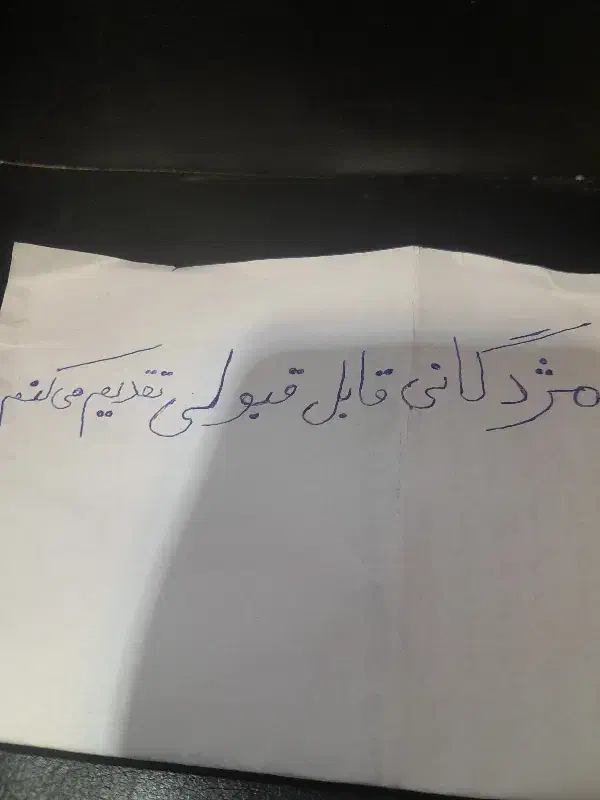 مژدگانی قابل قبولی تقدیم می کنم